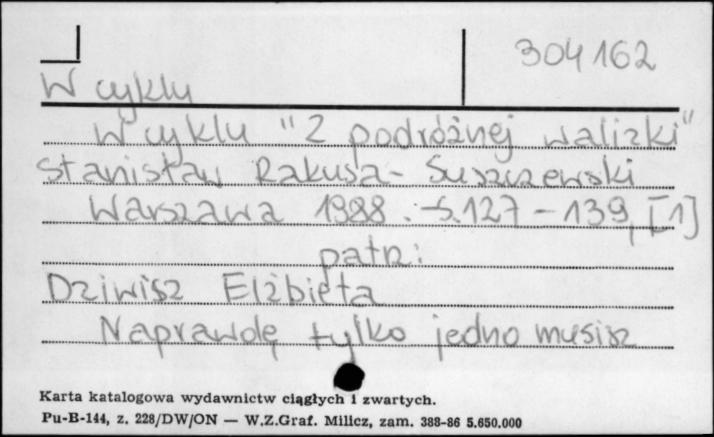 304162
W cyklu
W cyklu "Z podróżnej walizki"
Stanisław Rakusa-Suszczewski
Warszawa 1988. -s.127-139, [1]
patrz:
Dziwisz Elżbieta
Naprawdę tylko jedno musisz
Karta katalogowa wydawnictw ciągłych i zwartych.
Pu-B-144, z. 228/DW/ON — W.Z.Graf. Milicz, zam. 388-86 5.650.000